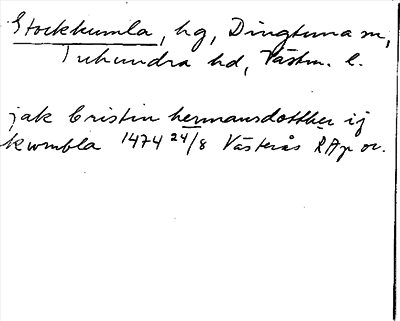 Stockkumla, hg, Dingtuna sn,
Tuhundra hd, Västm. l.
jak Cristin hermansdotther ij
kwmbla 1474 24/8 Västerås RAp or.